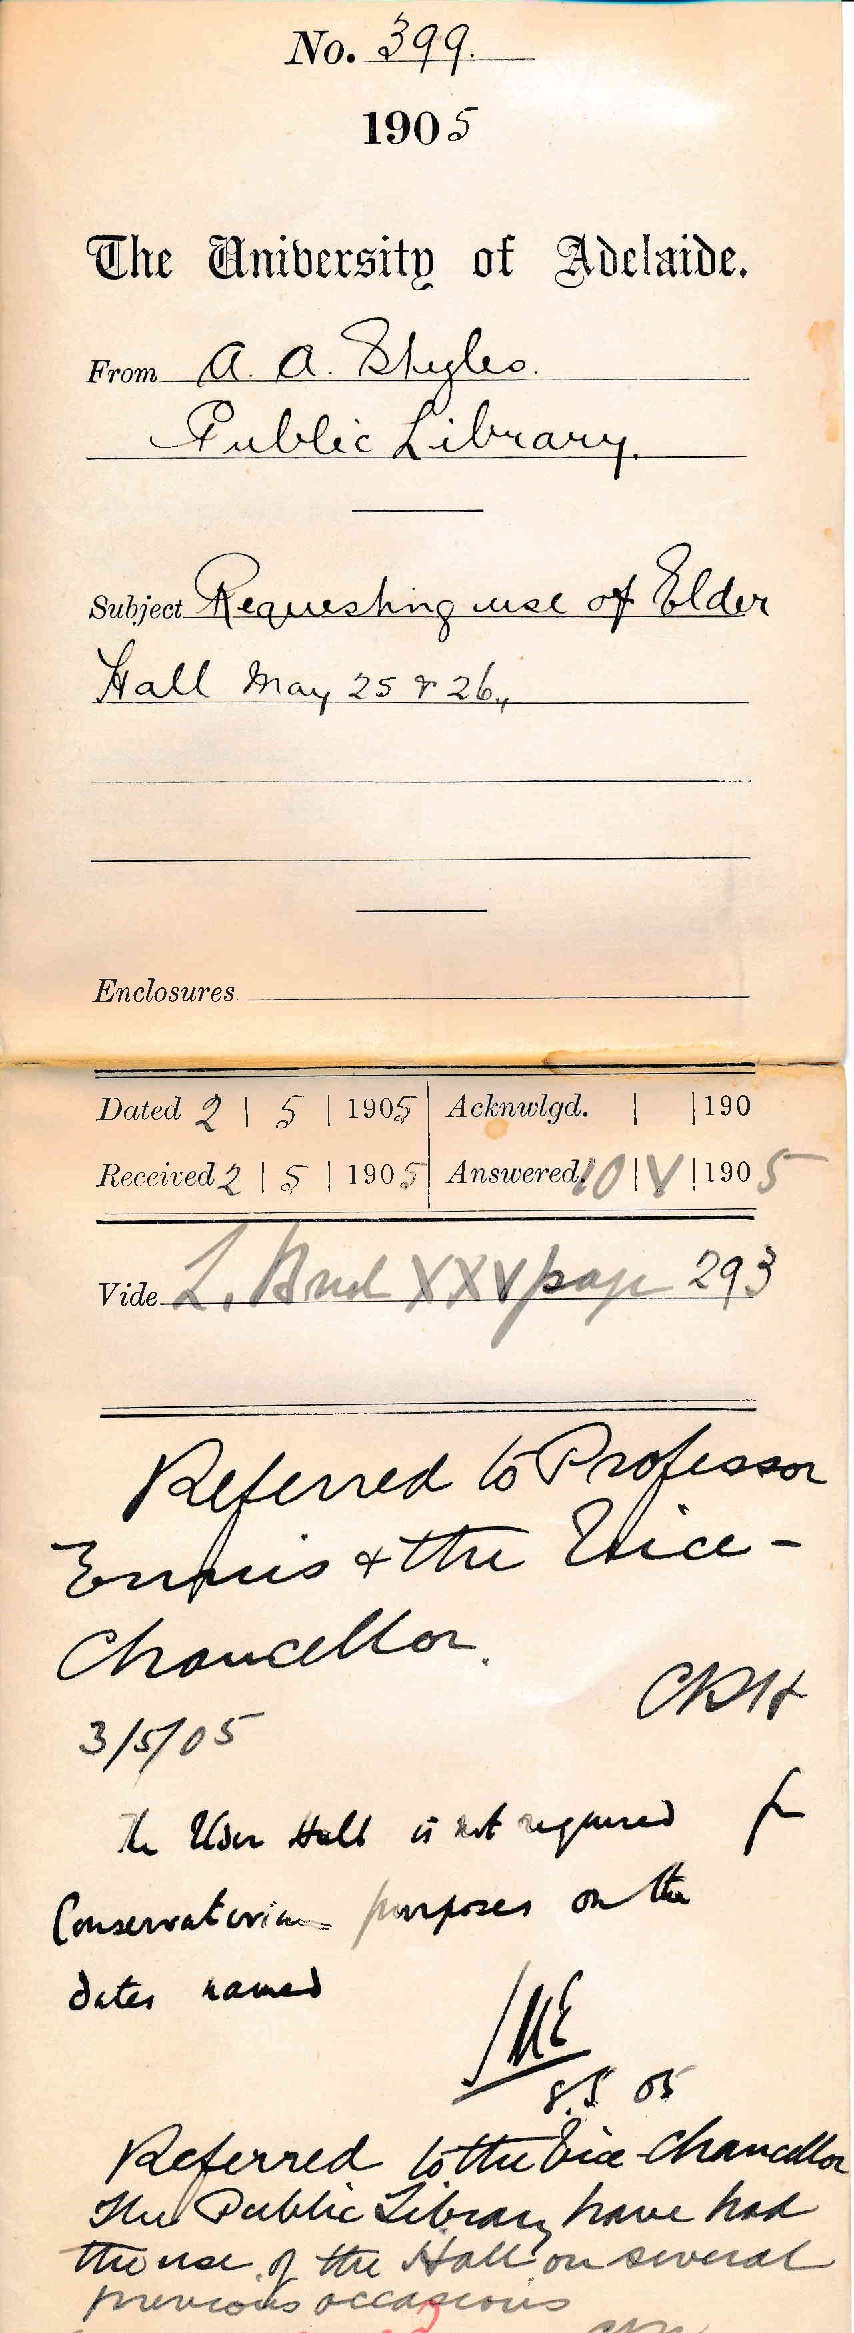 No. 399.
1905
The University of Adelaide.
From A. A. Stugles.
Public Library.
Subject Requesting use of Elder
Hall May 25 & 26.,
Enclosures
Dated 2 | 5 | 1905 Acknwlgd. | | 190
Received 2 | 5 | 1905 Answered. 10 | V | 1905
Vide L. Book XXV page 293
Referred to Professor
Ennis & the Vice-
Chancellor.
CRH
3/5/05
The Elder Hall is not required for
Conservatorium purposes on the
dates named
JME
8.5 05
Referred to the Vice-Chancellor
The Public Library have had
the use of the Hall on several
previous occasions